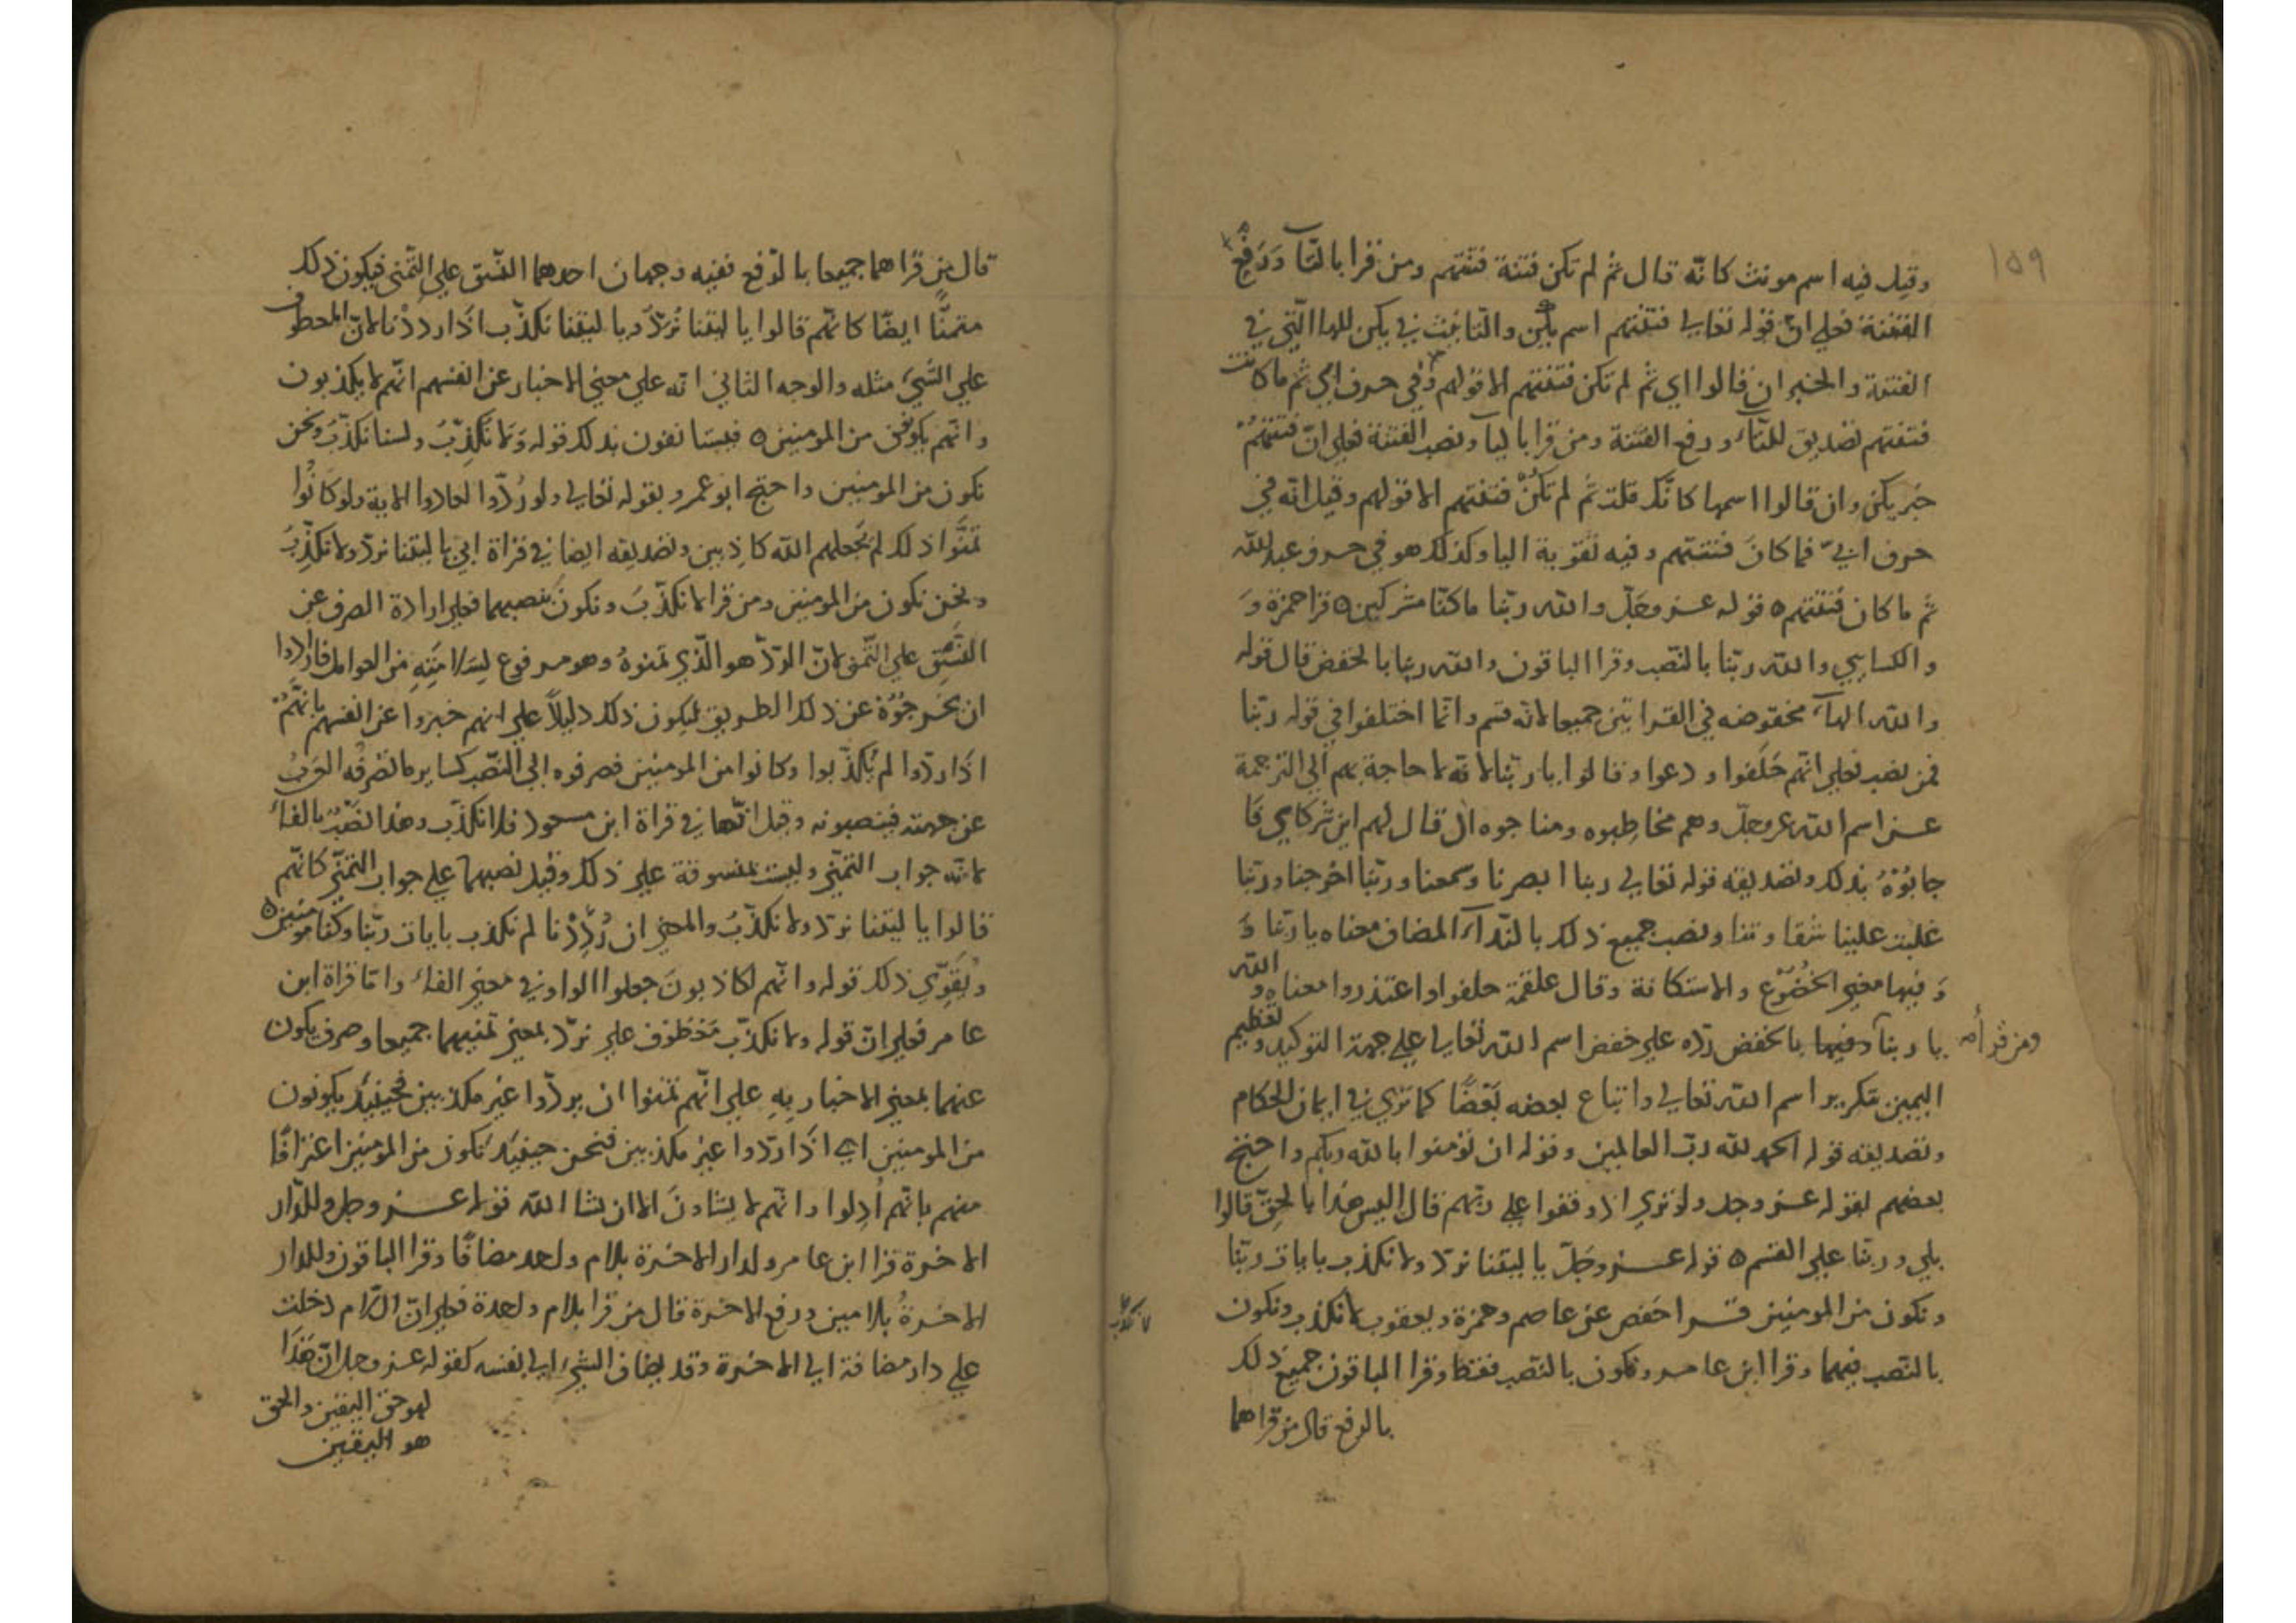 ١٥٩
وقيل فيه اسم مونث كانّه قال ثم لم تكن فتنة فتنتهم ومن قرا بالتآ ورفع
الفتنة فعلي انّ قوله تعالي فتنتهم اسم يكن والتانيث في يكن للها التي في
الفتنة والخبر ان قالوا اي ثم لم تكن فتنتهم الا قولهم وفي حرف ابي ثم ما كانت
فتنتهم تصديق للتآء ورفع الفتنة ومن قرا باليآ ونصب الفتنة فعلي انّ فتنتهمْ
خبر يكن وان قالوا اسمها كانّك قلت ثم لم تكنْ فتنتهم الا قولهم وقيل انّه في
حرف ابيّ فما كانَ فتنتهم وفيه تقوية اليا وكذلك هو في حرف عبد الله
ثم ما كان فتنتهم ه قوله عز وجلّ والله ربّنا ما كنّا مشركين ه قرا حمزة وَ
والكسايي والله ربّنا بالنّصب وقرا الباقون والله ربنا بالخفض قال قوله
والله الهآء مخفوضه في القراتين جميعا لانّه قسم وانّما اختلفوا في قوله ربّنا
فمن نصب فعلي انّهم حَلَفوا ودعوا وقالوا يا ربّنا لانّه لا حاجة بهم الي الترجمة
عن اسم الله عز وجلّ وهم مخاطبوه ومناجوه ال قال لهم اين شركايي فَا
جابُوْهُ بذلك وتصديقه قوله تعالي ربنا ابصرنا وسمعنا وربّنا اخرجنا وربّنا
غلبت علينا شقاوتنا ونصب جميع ذلك بالنّدآء المضاف معناه يا ربّنا وَ
وَفيها معني الخُضُوْع والاستكانة وقال علقمة حلفوا واعتذروا معناه والله
يا ربنآ ومن قرأه بالخفض ردّه علي خفض اسم الله تعالي علي جهة التوكيد وتعظيم
اليمين بتكرير اسم الله تعالي واتباع بعضه بَعْضًا كما تري في ايمان الحكام
وتصديقه قوله الحمد لله ربّ العالمين وقوله ان تؤمنوا بالله ربكم واحتج
بعضهم بقوله عز وجل ولو تري اذ وقفوا علي ربّهم قال اليس هذا بالحقّ قالوا
بلي وربّنا علي القسم ه قوله عز وجلّ يا ليتنا نردّ ولا نكذب بايات ربّنا
ونكون من المومنين قرا حفص عن عاصم وحمزة ويعقوب لا نكذب ونكون
بالنّصب فيهما وقرا ابن عامر ونكون بالنّصب فقط وقرا الباقون جميع ذلك
بالرفع قال من قراهما
قال من قراهما جميعا بالرّفع ففيه وجهان احدهما النّسق علي التّمني فيكون ذلك
متمنًّا ايضًا كانّهم قالوا يا ليتنا نُرَدّ ويا ليتنا نكذّب اذَا رددْنا لانّ المعطوف
علي الشّيء مثله والوجه الثاني انّه علي معني الاخبار عن انفسهم انّهم لا يكذبون
وانّهم يكونون من المومنين ه فيستانفون بذلك قوله وَلا نُكَذِّبُ ولسنا نكذّبُ ونحن
نكون من المومنين واحتج ابو عمرو بقوله تعالي ولو رُدّوا لعادوا الاية ولو كانُوا
تمنَّوا ذلك لم يجعلهم الله كاذِبين وتصديقه ايضا في قراة ابي يا ليتنا نردّ ولا نكذّبُ
ونحن نكون من المومنين ومن قرا لا نكذّبَ ونكونَ بنصبهما فعلي ارادة الصرف عن
النَّسَقِ علي التّمني لانّ الردّ هو الّذي تمنوهُ وهو مرفوع لِسَلامَتِهِ من العوامل فارادوا
ان يخرجُوْهُ عن ذلك الطريق ليكون ذلك دليلاً علي انهم خبروا عن انفسهم بانّهُمْ
اذَا ردّوا لم يُكذّبوا وكانوا من المومنين فصرفوه الي النّصب كساير ما تصرفُه العَربُ
عن جهته فينصبونه وقيل انّها في قراة ابن مسعود فلا نكذّب وهذا نَصْبٌ بالفاء
لانّه جواب التّمنّي وليست بمنسوقة علي ذلك وقيل نصبهما علي جواب التمنّي كانّهم
قالوا يا ليتنا نردّ ولا نكذّبُ والمعني ان رُدِدْنا لم نكذب بايات ربّنا وكنّا مومنين ه
ويُقَوّي ذلك قوله وانّهم لكاذبونَ جعلوا الواو في معني الفاء وامّا قراة ابن
عامر فعلي انّ قوله ولا نكذّب مَعْطوْف علي نردّ بمعني تمنيهما جميعا وصرف يكون
عنهما بمعني الاخبار بِهِ علي انّهم تمنوا ان يردّوا غير مكذبين فحينئذ يكونون
من المومنين اي اذَا ردّوا غير مكذبين فنحن حينئذ نكون من المومنين اعترافًا
منهم بانّهم اُدِلوا وانّهم لا يشاونَ الا ان يشا الله قوله عز وجل وللدّار
الاخرة قرا ابن عامر ولدار الاخرة بلام واحد مضافًا وقرا الباقون وللدار
الاخرةُ بلامين ورفع الاخرة قال من قرا بلام واحدة فعلي انّ اللّام دخلت
علي دار مضافة الي الاخرة وقد يضاف الشيء الي نفسه كقوله عز وجل انّ هَذَا
لهو حق اليقين والحق
هو اليقين